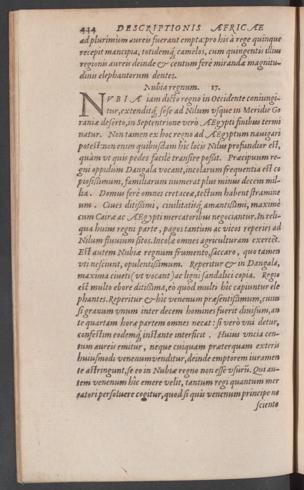 434 DESCRIPTIONIS AFRICAE
ad plurimum aureis fuerant empta: pro his à rege quinque
recepit mancipia, totidemq́ camelos, cum quingentis illius
regionis aureis deinde & centum ferè mirandæ magnitu-
dinis elephantorum dentes.
Nubiæ regnum. 17.
NVBIA iam dicto regno in Occidente coniungi-
tur, extenditq́ sese ad Nilum vsque in Meridie Go
raniæ deserto, in Septentrione verò Ægypti finibus termi
natur. Non tamen ex hoc regno ad Ægyptum nauigari
potest: non enim quibusdam hic locis Nilus profundior est,
quàm vt quis pedes facilè transire possit. Præcipuum re-
gni oppidum Dangala vocant, incolarum frequentia est co
piosissimum, familiarum numerat plus minus decem mil-
lia. Domus ferè omnes cretaceæ, tectum habent stramine
um. Ciues ditissimi, ciuilitatisq́ amantissimi, maximè
cum Cairæ ac Ægypti mercatoribus negociantur. In reli-
qua huius regni parte, pagos tantum ac vicos reperies ad
Nilum fluuium sitos. Incolæ omnes agriculturam exercēt.
Est autem Nubiæ regnum frumento, saccaro, quo tamen
vti nesciunt, opulentissimum. Reperitur & in Dangala,
maxima ciueti (vt vocant) ac ligni sandalici copia. Regio
est multo ebore ditissima, eò quod multi hîc capiuntur ele
phantes. Reperitur & hîc venenum præsentissimum, cuius
si granum vnum inter decem homines fuerit diuisum, an-
te quartam horæ partem omnes necat: si verò vni detur,
confestim eodemq́ instante interficit. Huius vncia cen-
tum aureis emitur, neque cuiquam præterquam exteris
huiusmodi venenum venditur, deinde emptorem iuramen
to astringunt, se eo in Nubiæ regno non esse vsurū. Qui au-
tem venenum hîc emere velit, tantum regi quantum mer
catori persoluere cogitur, quod si quis venenum principe ne
sciente